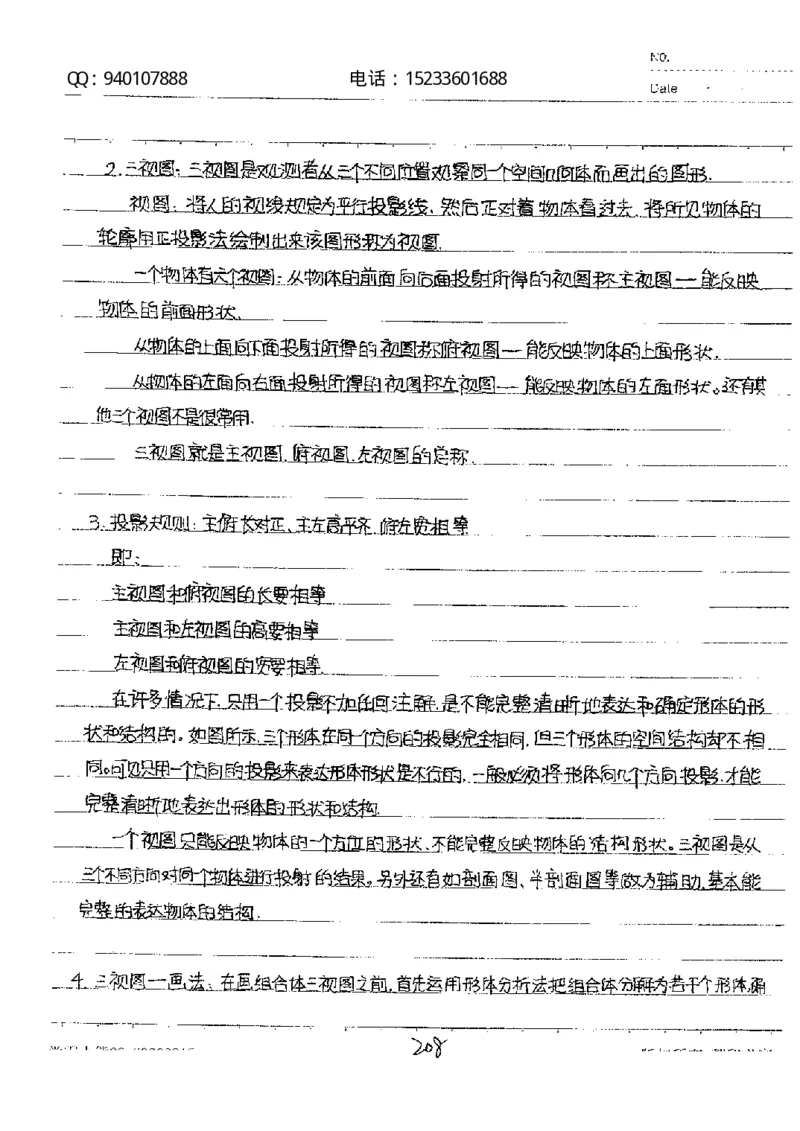 No.
QQ：940107888 电话：15233601688
Date
2.三视图：三视图是观测者从三个不同位置观察同一个空间几何体而画出的图形.
视图：将人的视线规定为平行投影线，然后正对着物体看过去，将所见物体的
轮廓用正投影法绘制出来该图形称为视图.
一个物体有六个视图：从物体的前面向后面投射所得的视图称主视图——能反映
物体的前面形状.
从物体的上面向下面投射所得的视图称俯视图——能反映物体的上面形状.
从物体的左面向右面投射所得的视图称左视图——能反映物体的左面形状。还有其
他三个视图不是很常用.
三视图就是主视图、俯视图、左视图的总称.
3.投影规则：主俯长对正、主左高平齐、俯左宽相等
即：
主视图和俯视图的长要相等
主视图和左视图的高要相等
左视图和俯视图的宽要相等.
在许多情况下，只用一个投影不加任何注解，是不能完整清晰地表达和确定形体的形
状和结构的。如图所示，三个形体在同一个方向的投影完全相同，但三个形体的空间结构却不相
同。可见只用一个方向的投影来表达形体形状是不行的.一般必须将形体向几个方向投影，才能
完整清晰地表达出形体的形状和结构.
一个视图只能反映物体的一个方位的形状、不能完整反映物体的结构形状。三视图是从
三个不同方向对同一个物体进行投射的结果。另外还有如剖面图、半剖面图等做为辅助，基本能
完整的表达物体的结构.
4.三视图一画法：在画组合体三视图之前，首先运用形体分析法把组合体分解为若干个形体，确
208